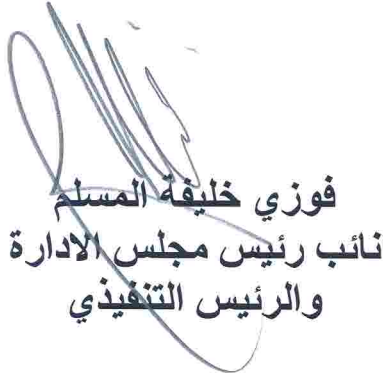 فوزي خليفة المسلم
نائب رئيس مجلس الادارة
والرئيس التنفيذي